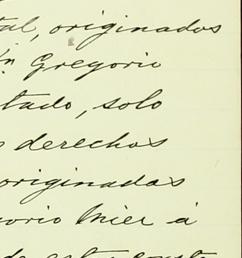 tal, originados
Gregorio
tado, solo
derechos
originadas
gorio Mier á
de esta